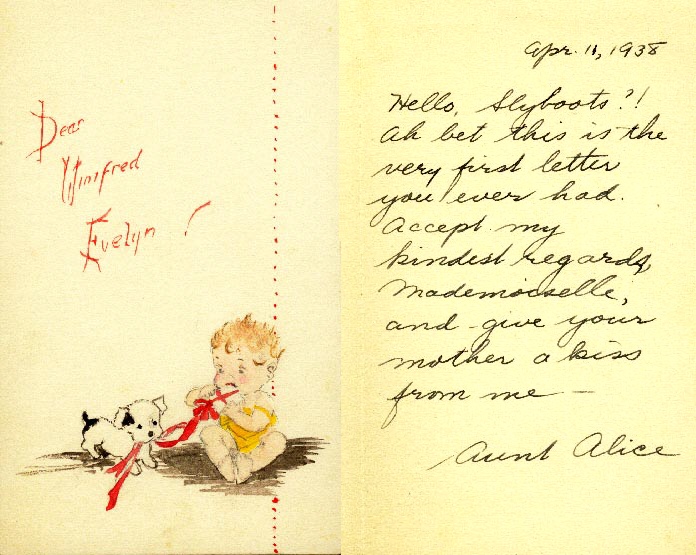 Dear
Winifred
Evelyn!
Apr. 11, 1938
Hello, Slyboots?!
Ah bet this is the
very first letter
you ever had.
Accept my
kindest regards,
Mademoiselle,
and give your
mother a kiss
from me —
Aunt Alice